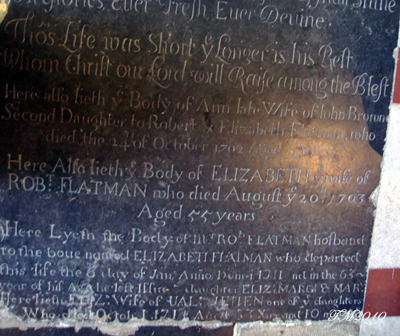 Glories Ever Fresh Ever Devine.
Tho's Life was Short yͤ Longer is his Rest
Whom Christ our Lord will Raise among the Blest
Here also lieth yͤ Body of Ann late Wife of Iohn Browne
Second Daughter to Robert & Elizabeth Flatman, who
died the 24 of October 1702
Here Also lieth yͤ Body of ELIZABETH yͤ wife of
ROBᵗ. FLATMAN who died August yͤ 20ᵗ. 1703
Aged 55 years
Here Lyeth the Body of ROᵇ. FLATMAN hosband
to the boue named ELIZABETH FLATMAN who departed
this life the 8 day of Janʸ Anno Domet 1711 in the 63
year of his Age he left Issue daughter ELIZ: MARG: & MAR:
Here lieth ELIZ: Wife of one of yͤ daughters
Who died Octob
FM2010